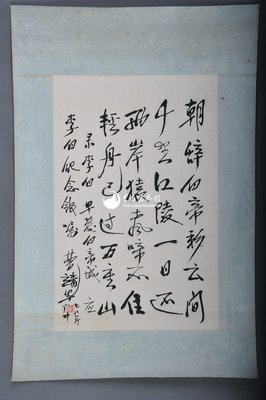 朝辞白帝彩云间
千里江陵一日还
两岸猿声啼不住
轻舟已过万重山
录李白早发白帝城 应
李白纪念馆嘱 曹靖华